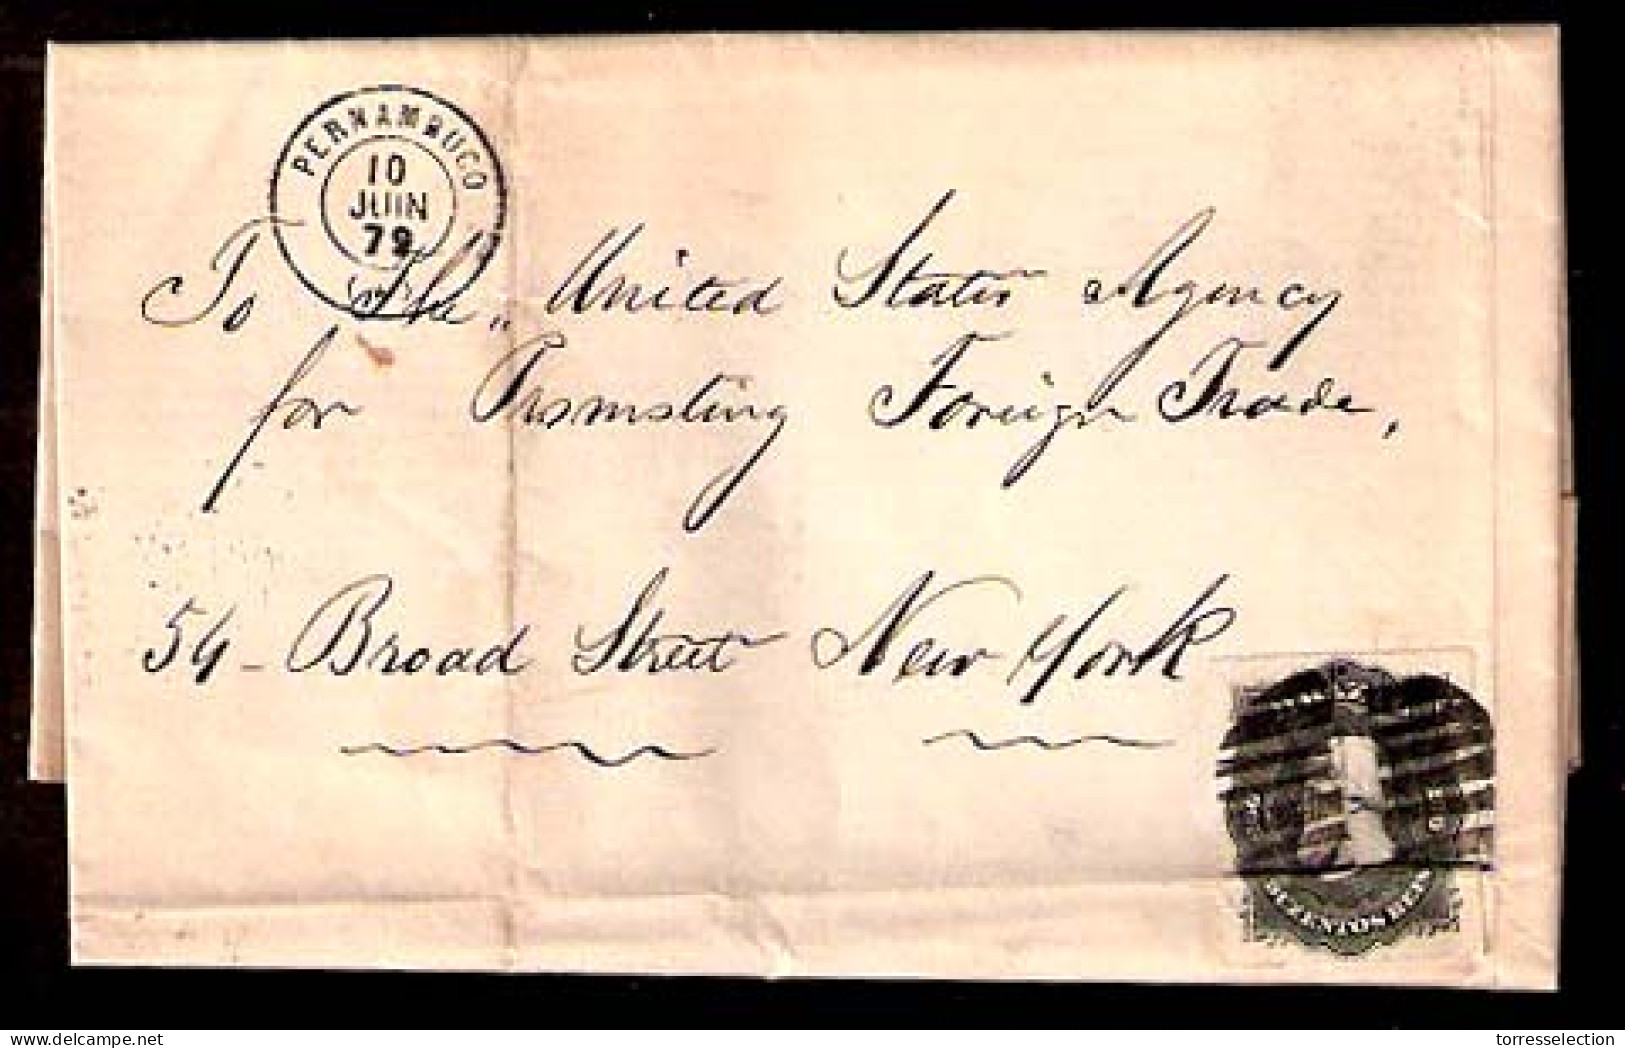 PERNAMBUCO
10
JUIN
79
To The "United States Agency
for Promoting Foreign Trade,
54 - Broad Street New York
DUZENTOS REIS
www.delcampe.net
torresselection